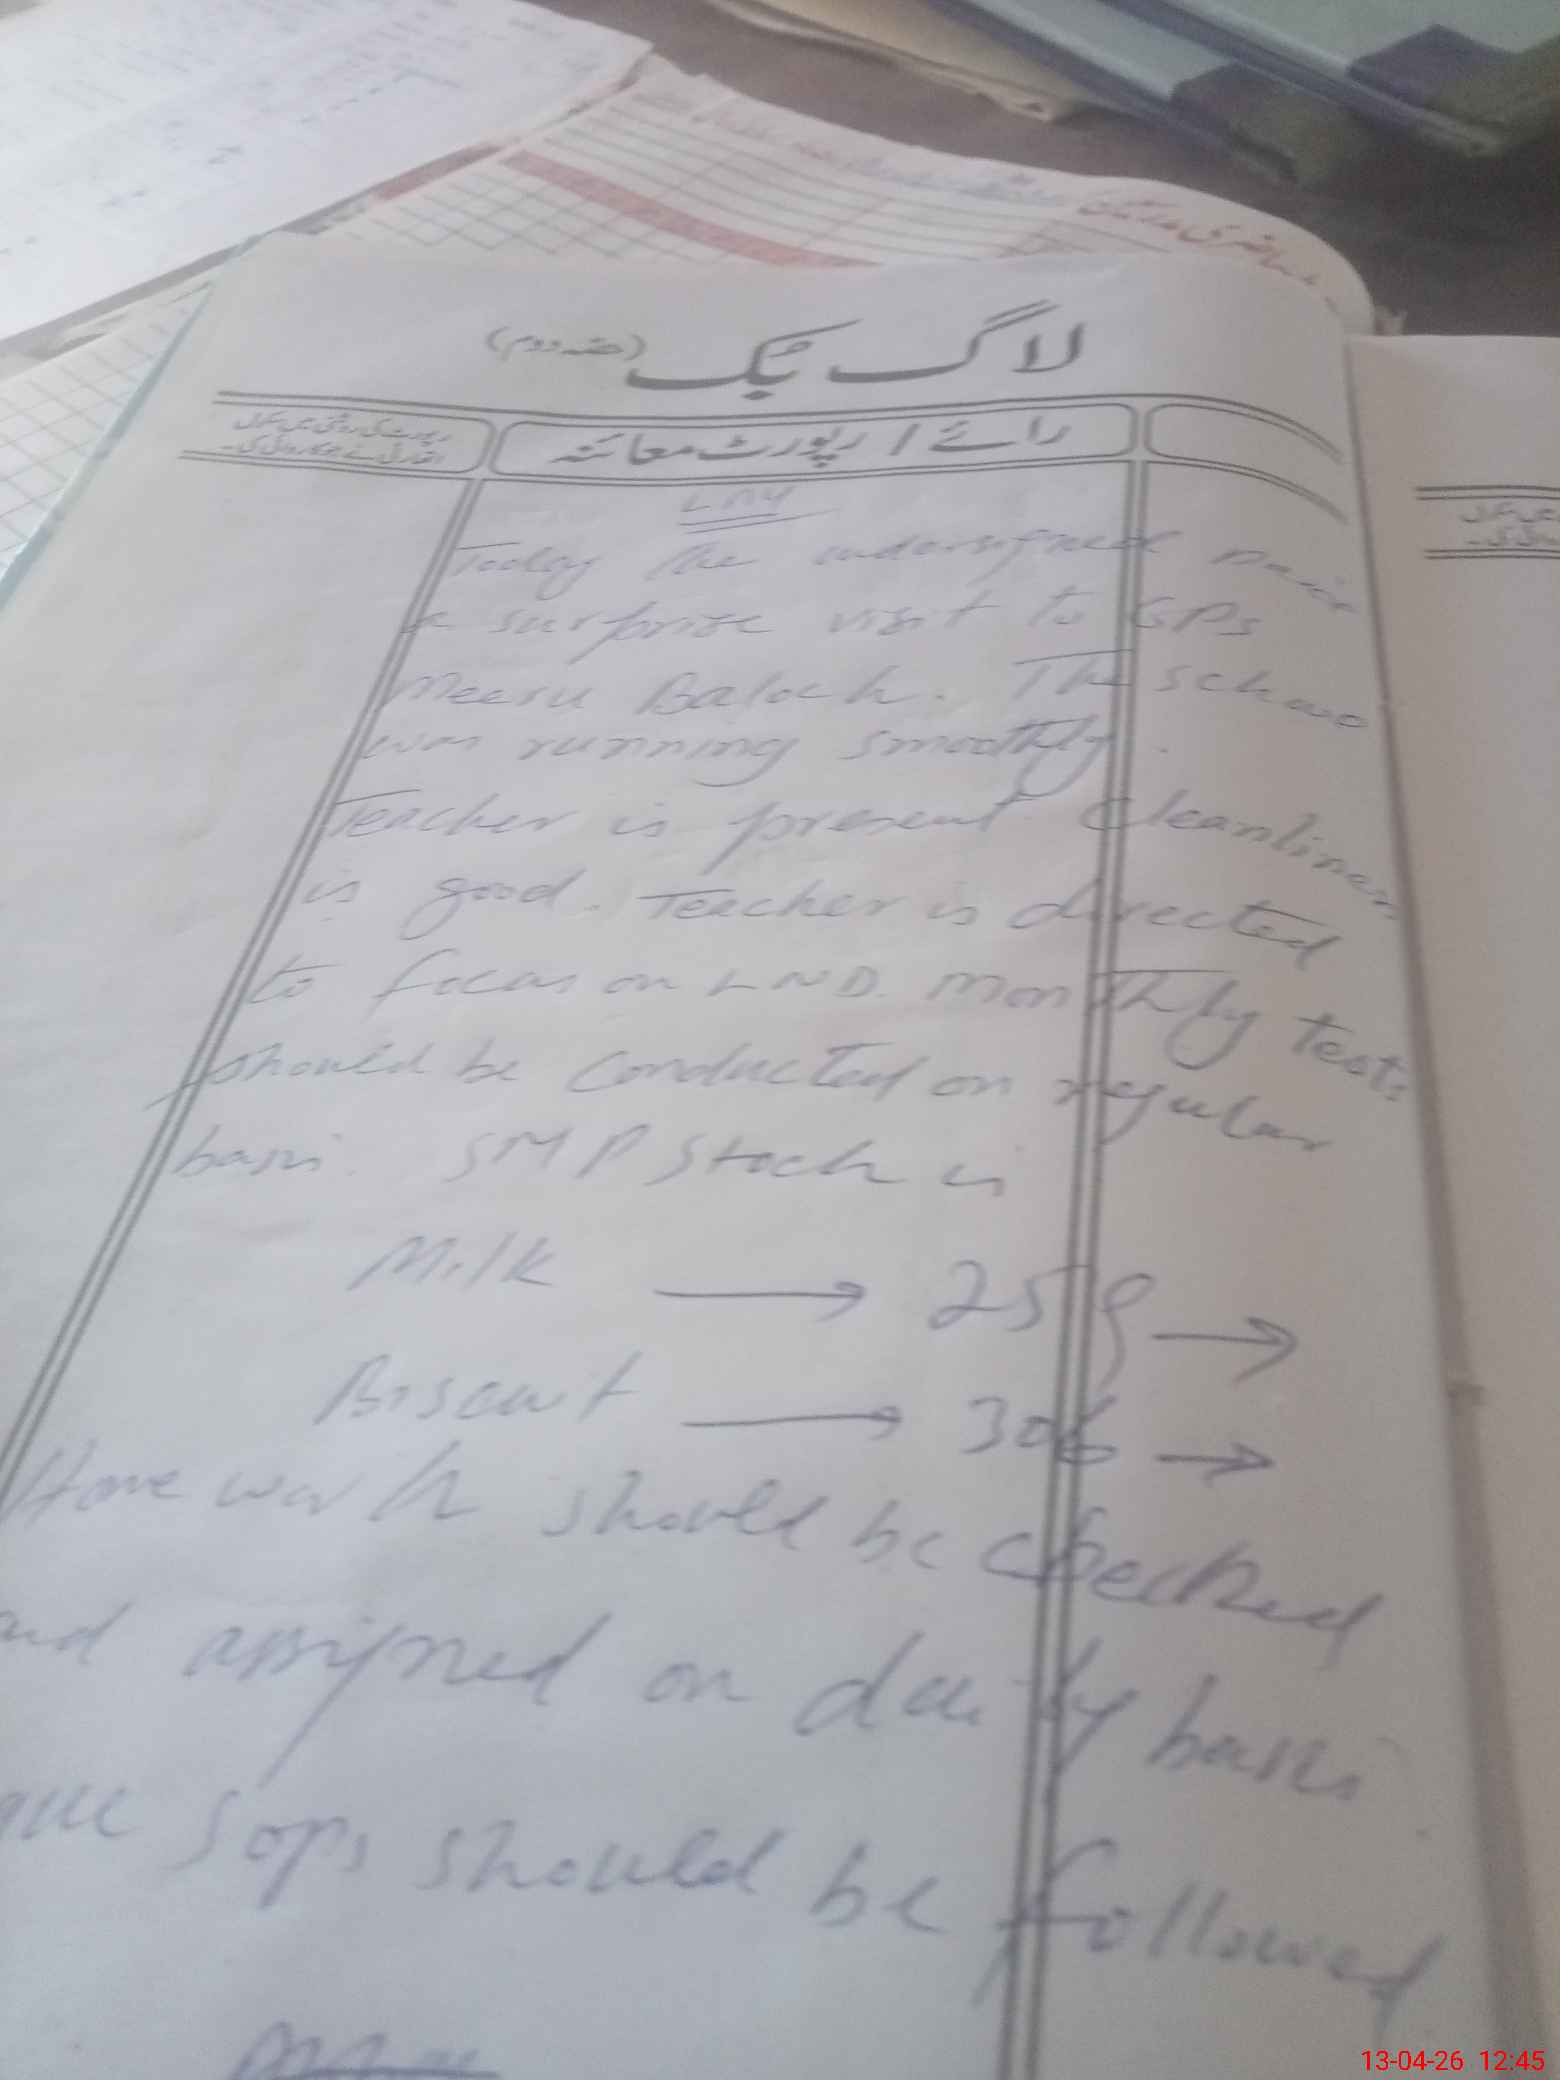 لاگ بک (حصہ دوم)
رائے / رپورٹ معائنہ
رپورٹ کی روشنی میں سکول
Today the undersigned paid
a surprise visit to GPS
Meeru Baloch. The school
was running smoothly.
Teacher is present cleanliness
is good. Teacher is directed
to focus on LND. Monthly tests
should be conducted on regular
basis. SMP Stock is
Milk → 259 →
Biscuit → 306 →
Home work should be checked
and assigned on daily basis
Sops should be followed
13-04-26 12:45